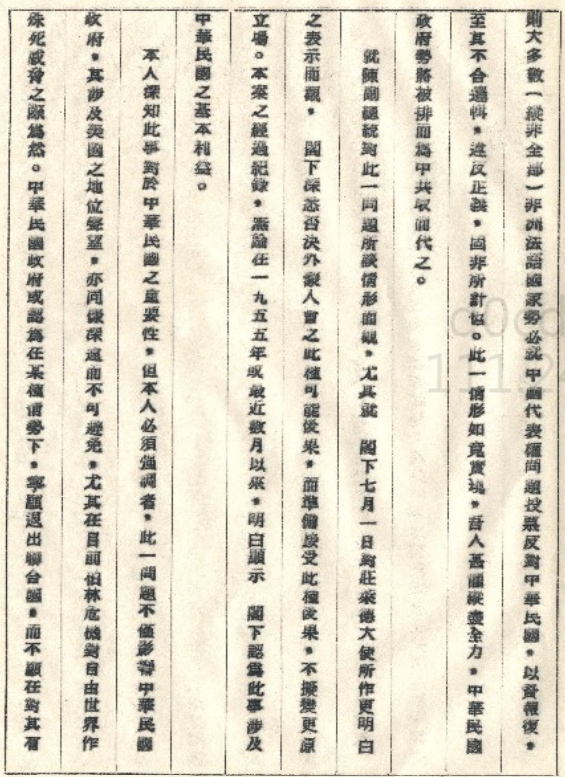 則大多數(縱非全部)非洲法語國家勢必就中國代表權問題投票反對中華民國,以資報復,
至其不合邏輯,違反正義,固非所計也。此一情形如竟實現,吾人甚懼縱盡全力,中華民國
政府勢將被排而為中共取而代之。
就陳副總統對此一問題所談情形而觀,尤其就 閣下七月一日對莊萊德大使所作更明白
之表示而觀, 閣下深悉否決外蒙入會之此種可能後果,而準備接受此種後果,不擬變更原
立場。本案之經過紀錄,無論在一九五五年或最近數月以來,明白顯示 閣下認為此事涉及
中華民國之基本利益。
本人深知此事對於中華民國之重要性,但本人必須強調者,此一問題不僅影響中華民國
政府,其涉及美國之地位聲望,亦同樣深遠而不可避免,尤其在目前柏林危機對自由世界作
殊死威脅之際為然。中華民國政府或認為在某種情勢下,寧願退出聯合國,而不願在對其有